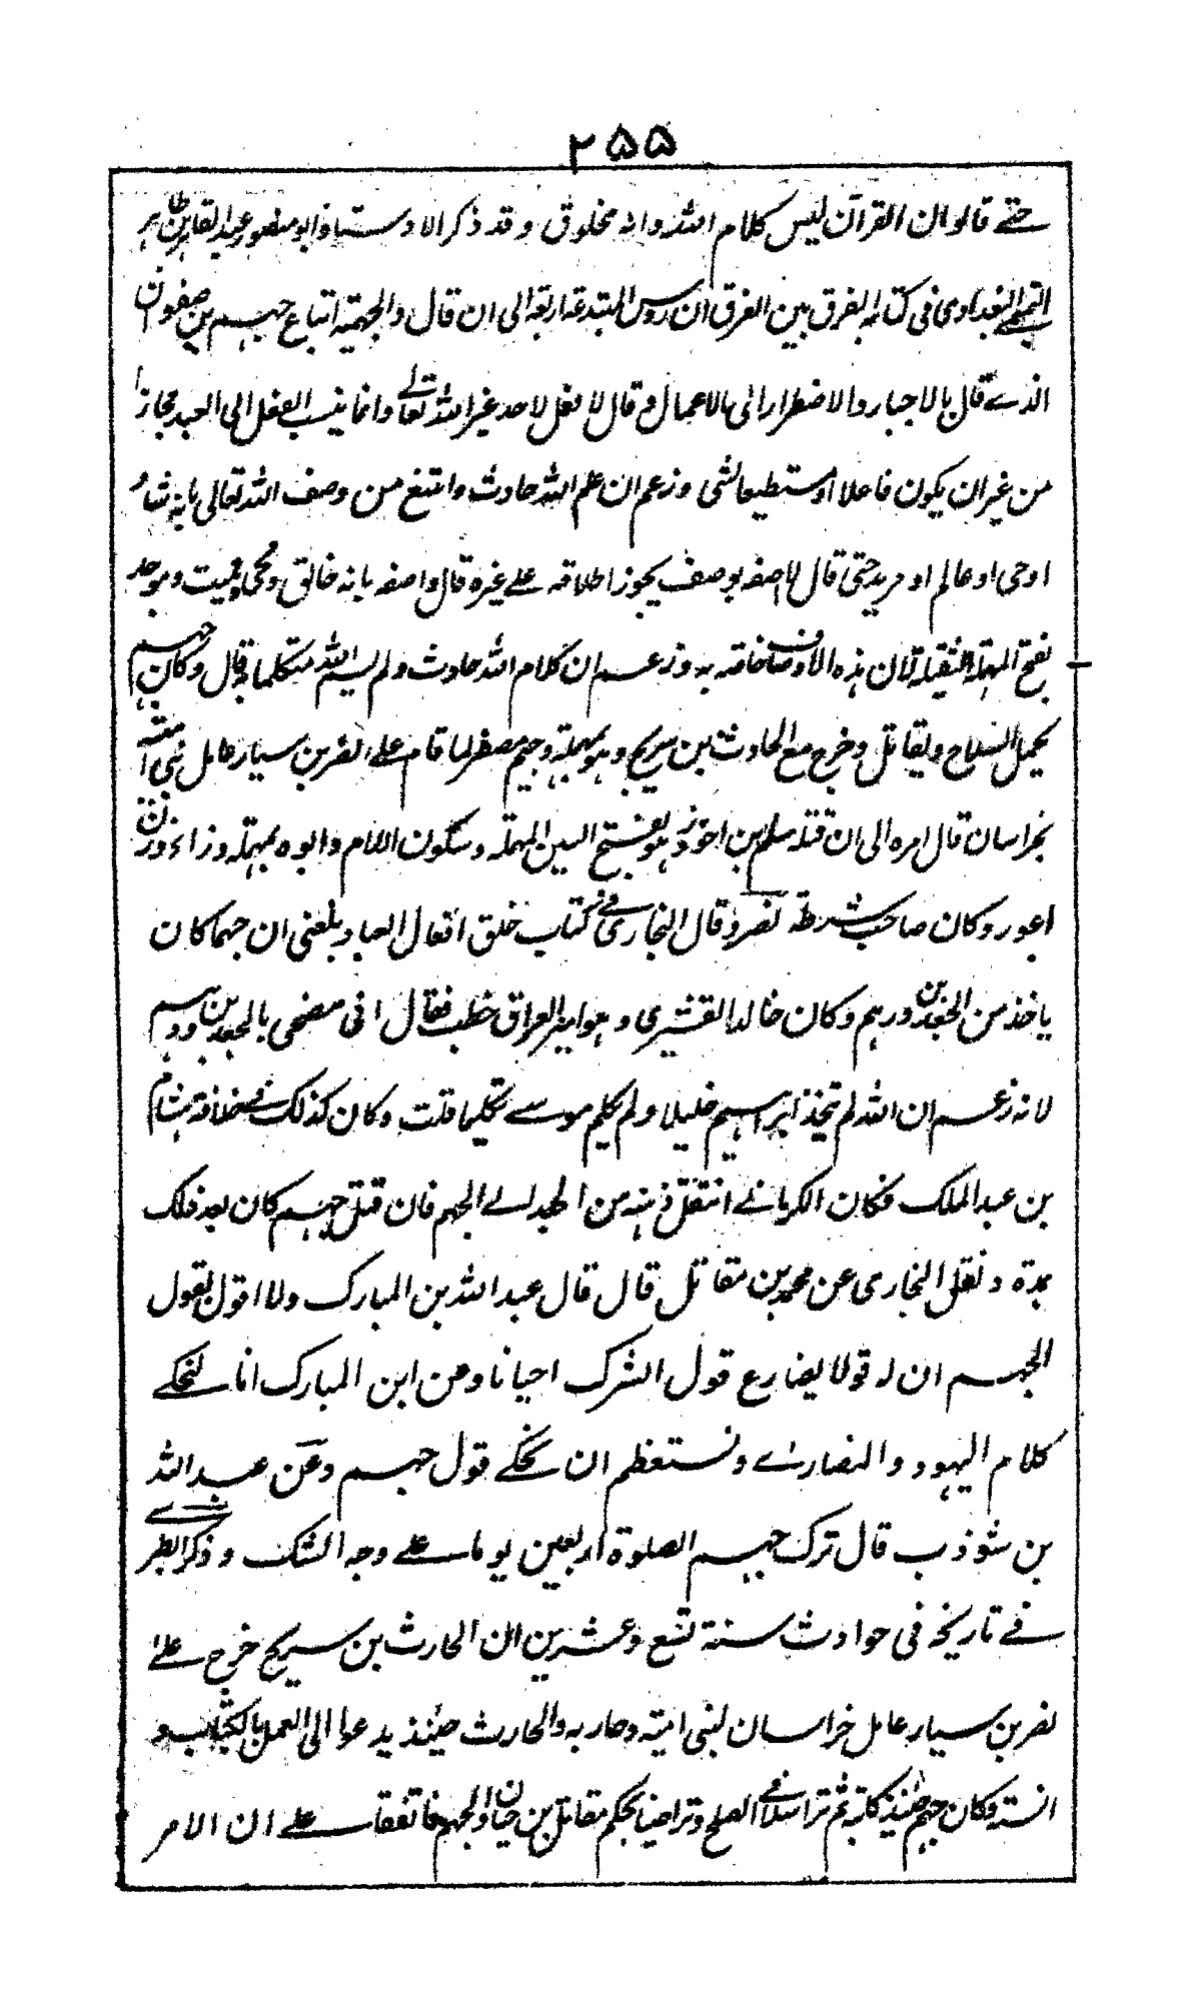 ٢٥٥
حتے قالوا ان القرآن ليس كلام الله وانه مخلوق وقد ذكر الاستاذ ابو منصور عبد القاهر بن طاهر
التميمے البغدادى فى كتابه الفرق بين الفرق ان رؤس المبتدعة اربعة الى ان قال والجهمية اتباع جهم بن صفوان
الذے قال بالاجبار والاضطرار الى الاعمال وقال لا فعل لاحد غير الله تعالے وانما ينسب الفعل الى العبد مجازا
من غير ان يكون فاعلا او مستطيعا لشئ وزعم ان علم الله حادث وامتنع من وصف الله تعالى بانه شئ
او حى او عالم او مريد حتى قال لا اصفه بوصف يجوز اطلاقه علے غيره قال واصفه بانه خالق ومحى ومميت وموحد
بفتح المهملة الثقيلة لان هذه الاوصاف خاصة به وزعم ان كلام الله حادث ولم يسم الله متكلما به قال وكان جهم
يحمل السلاح ويقاتل وخرج مع الحارث بن سريج وهو بمهملة وجيم مصغر لما قام علے نصر بن سيار عامل بنى امية
بخراسان قال امره الى ان قتله سلم بن احوز وهو بفتح السين المهملة وسكون اللام وابوه بمهملة وزاء وزن
اعور وكان صاحب شرطة نصر وقال البخارى فے كتاب خلق افعال العباد بلغنى ان جهما كان
ياخذ من الجعد بن درهم وكان خالد القشيرى وهو امير العراق خطب فقال انى مضحى بالجعد بن درهم
لانه زعم ان الله لم يتخذ ابراهيم خليلا ولم يكلم موسے تكليما قلت وكان كذلك فے خلافة هشام
بن عبد الملك فكان الكرمانے انتقل ذهنه من الجعد الے الجهم فان قتل جهم كان بعد ذلك
بمدة ونقل البخارى عن محمد بن مقاتل قال قال عبد الله بن المبارك ولا اقول بقول
الجهم ان له قولا يضارع قول الشرك احيانا وعن ابن المبارك انا لنحكے
كلام اليهود والنصارے ونستعظم ان نحكے قول جهم وعن عبد الله
بن شوذب قال ترك جهم الصلوة اربعين يوما علے وجه الشك وذكر الطبرے
فے تاريخه فى حوادث سنة تسع وعشرين ان الحارث بن سريج خرج علے
نصر بن سيار عامل خراسان لبنى امية وحاربه والحارث حينئذ يدعو الى العمل بالكتاب و
السنة وكان جهم حينئذ كاتبه ثم تراسلا فے الصلح وتراضيا بحكم مقاتل بن حيان والجهم فاتفقا علے ان الامر